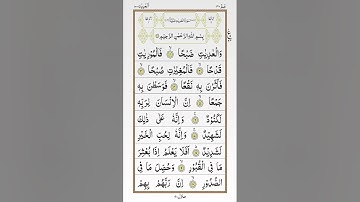 بِسْمِ اللّٰهِ الرَّحْمٰنِ الرَّحِيْمِ
وَالْعٰدِيٰتِ ضَبْحًا ۙ فَالْمُوْرِيٰتِ
قَدْحًا ۙ فَالْمُغِيْرٰتِ صُبْحًا ۙ
فَاَثَرْنَ بِهٖ نَقْعًا ۙ فَوَسَطْنَ بِهٖ
جَمْعًا ۙ اِنَّ الْاِنْسَانَ لِرَبِّهٖ
لَكَنُوْدٌ ۚ وَاِنَّهٗ عَلٰى ذٰلِكَ
لَشَهِيْدٌ ۚ وَاِنَّهٗ لِحُبِّ الْخَيْرِ
لَشَدِيْدٌ ۗ اَفَلَا يَعْلَمُ اِذَا بُعْثِرَ
مَا فِى الْقُبُوْرِ ۙ وَحُصِّلَ مَا فِى
الصُّدُوْرِ ۙ اِنَّ رَبَّهُمْ بِهِمْ